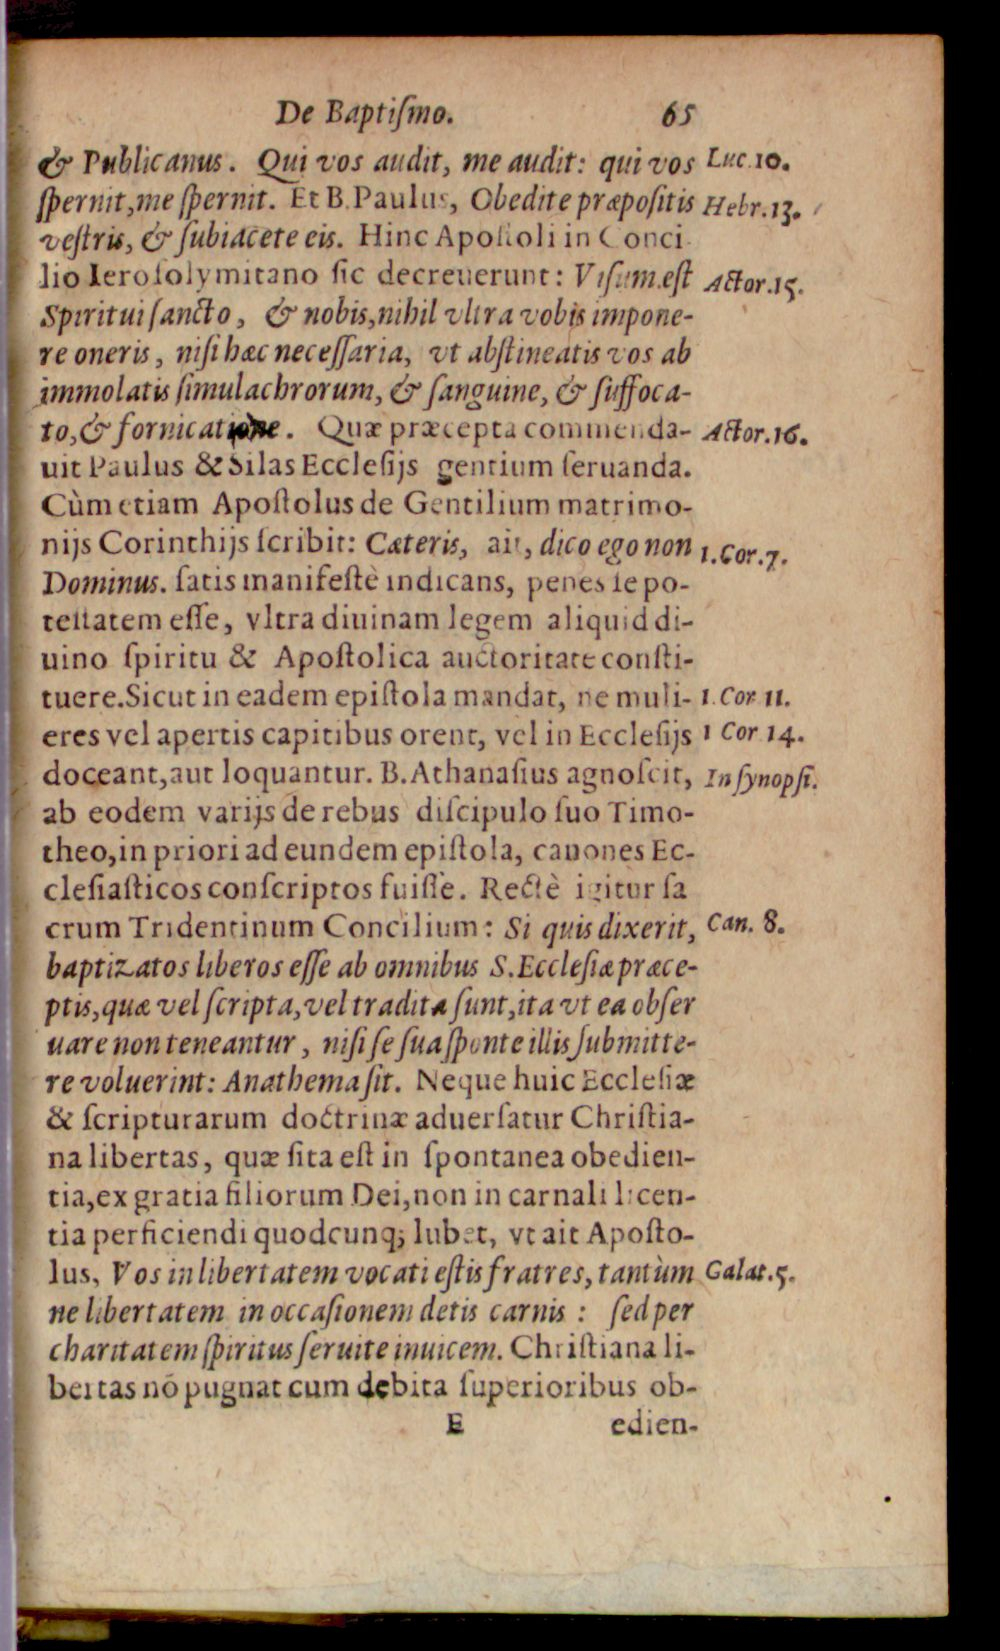 De Baptiſmo. 65
& Publicanus. Qui vos audit, me audit: qui vos Luc.10.
ſpernit,me ſpernit. Et B.Paulus, Obedite præpoſitis Hebr.13.
veſtris, & ſubiacete eis. Hinc Apoſtoli in Conci-
lio Ieroſolymitano ſic decreuerunt: Viſum eſt Actor.15.
Spiritui ſancto, & nobis,nihil vltra vobis impone-
re oneris, niſi hæc neceſſaria, vt abſtineatis vos ab
immolatis ſimulachrorum, & ſanguine, & ſuffoca-
to,& fornicatione. Quæ præcepta commenda- Actor.16.
uit Paulus & Silas Eccleſijs gentium ſeruanda.
Cùm etiam Apoſtolus de Gentilium matrimo-
nijs Corinthijs ſcribit: Cæteris, ait, dico ego non 1.Cor.7.
Dominus. ſatis manifeſtè indicans, penes ſe po-
teſtatem eſſe, vltra diuinam legem aliquid di-
uino ſpiritu & Apoſtolica auctoritate conſti-
tuere.Sicut in eadem epiſtola mandat, ne muli- 1.Cor 11.
eres vel apertis capitibus orent, vel in Eccleſijs 1 Cor 14.
doceant,aut loquantur. B.Athanaſius agnoſcit, In ſynopſi.
ab eodem varijs de rebus diſcipulo ſuo Timo-
theo,in priori ad eundem epiſtola, canones Ec-
cleſiaſticos conſcriptos fuiſſe. Rectè igitur ſa
crum Tridentinum Concilium: Si quis dixerit, Can. 8.
baptizatos liberos eſſe ab omnibus S.Eccleſiæ præce-
ptis,quæ vel ſcripta,vel tradita ſunt,ita vt ea obſer
uare non teneantur, niſi ſe ſua ſponte illis ſubmitte-
re voluerint: Anathema ſit. Neque huic Eccleſiæ
& ſcripturarum doctrinæ aduerſatur Chriſtia-
na libertas, quæ ſita eſt in ſpontanea obedien-
tia,ex gratia filiorum Dei,non in carnali licen-
tia perficiendi quodcunq; lubet, vt ait Apoſto-
lus, Vos in libertatem vocati eſtis fratres, tantùm Galat.5.
ne libertatem in occaſionem detis carnis: ſed per
charitatem ſpiritus ſeruite inuicem. Chriſtiana li-
bertas nō pugnat cum debita ſuperioribus ob-
E edien-